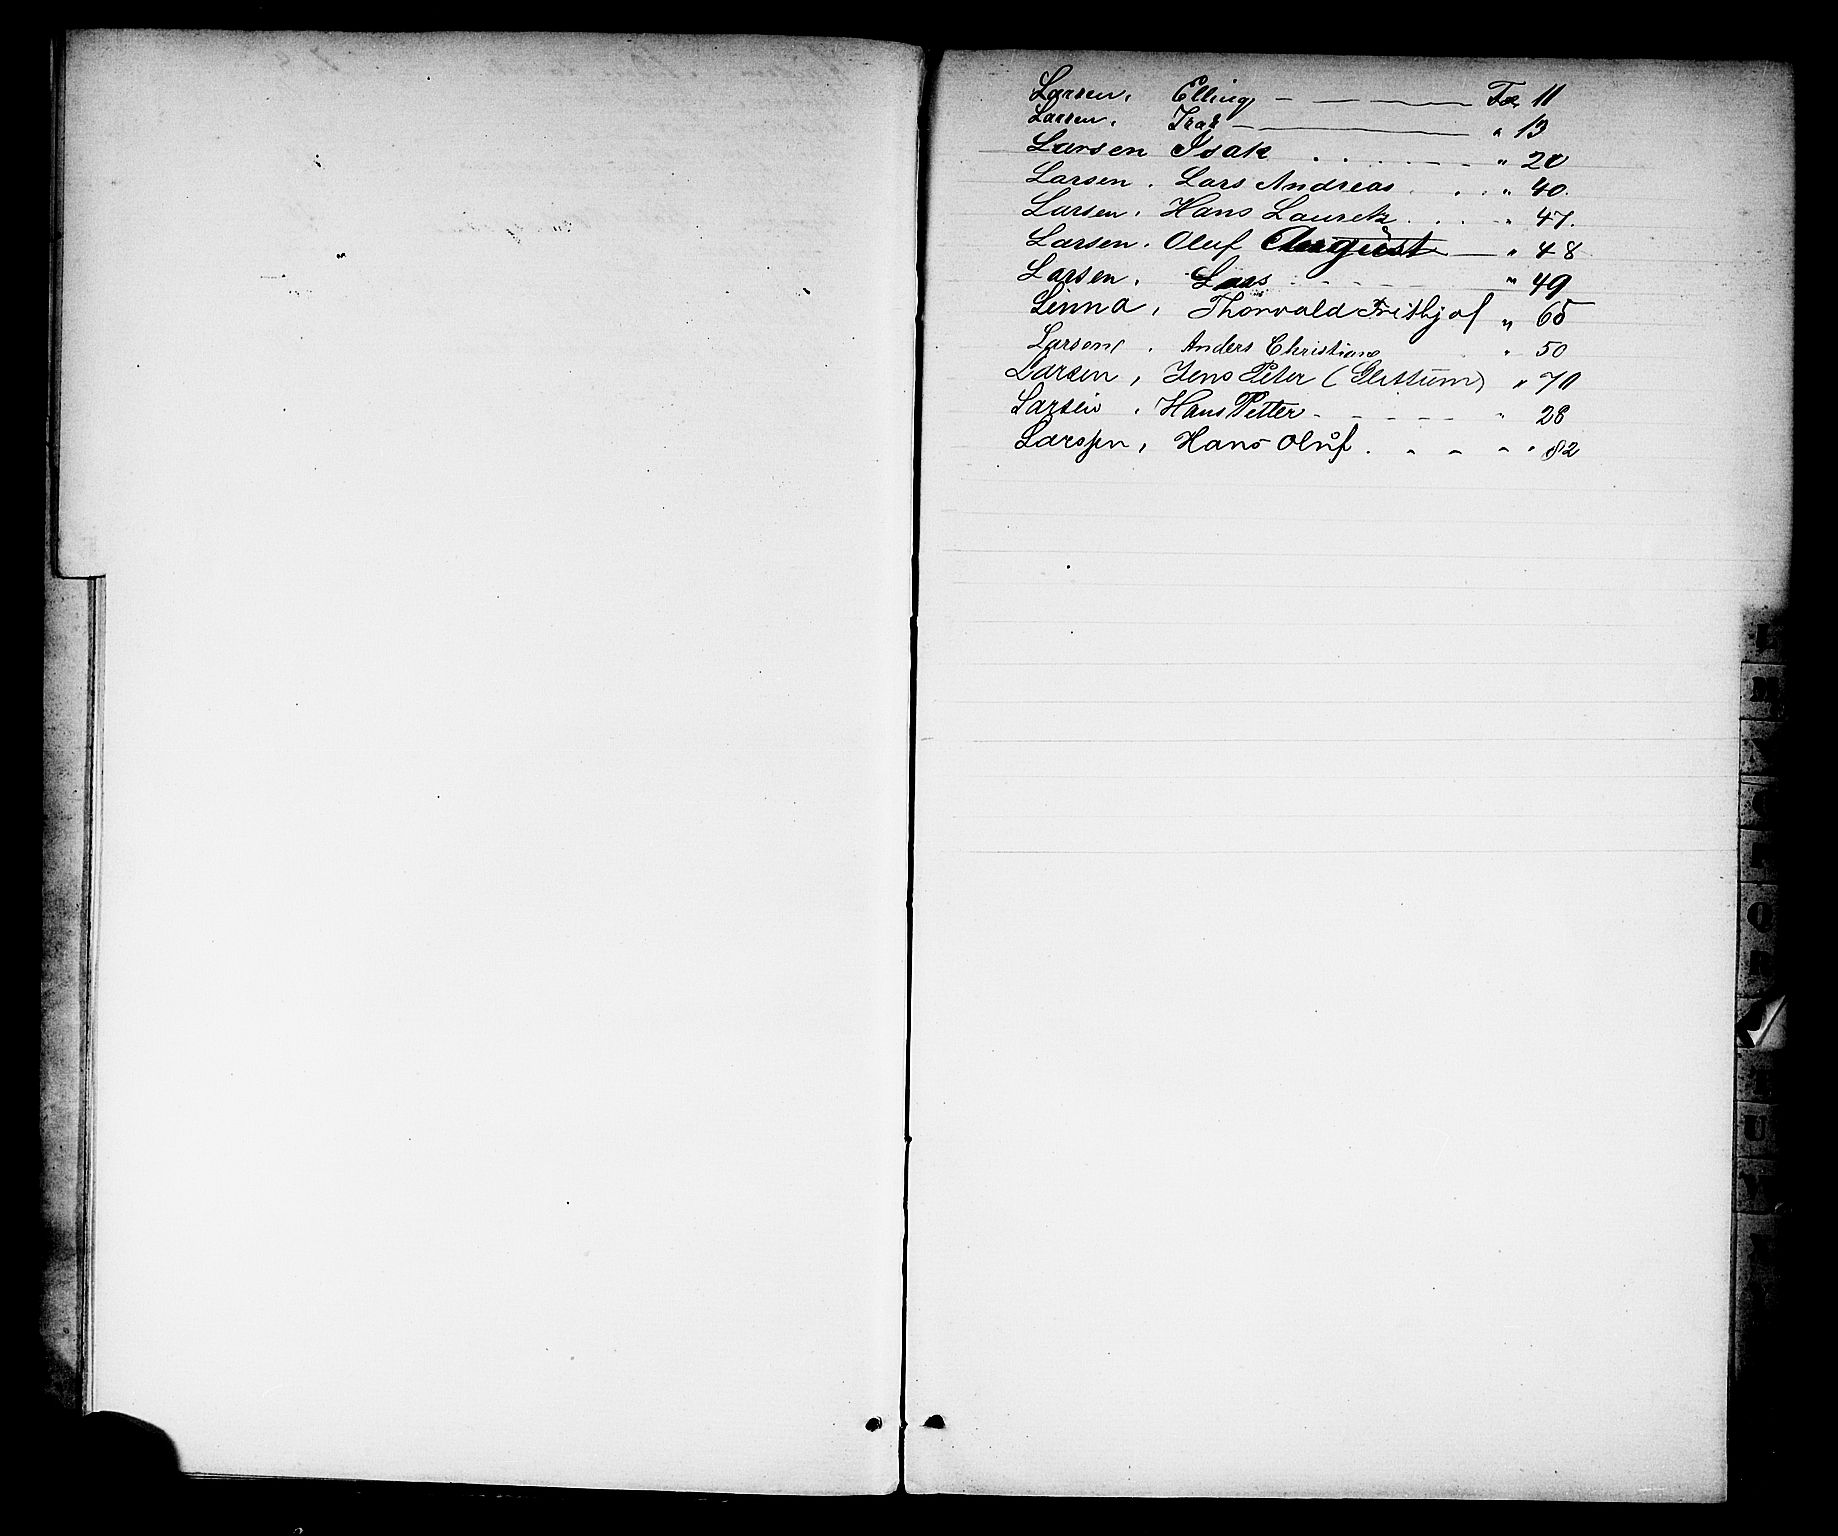 Larsen, Elling — — — — Fol. 11
Larsen, Isak — — " 13
Larsen Isak . . . . . - - " 20
Larsen, Lars Andreas . . . " 40.
Larsen, Hans Lauretz . . . " 47.
Larsen, Oluf August — " 48
Larsen, Lars . . - - - " 49
Linna, Thorvald Frithjof " 65
Larsen, Anders Christian " 50
Larsen, Jens Peter (Glettum) " 70
Larsen, Hans Petter - - - - - " 28
Larssen, Hans Oluf . - - - " 82
L
N
O
U
V